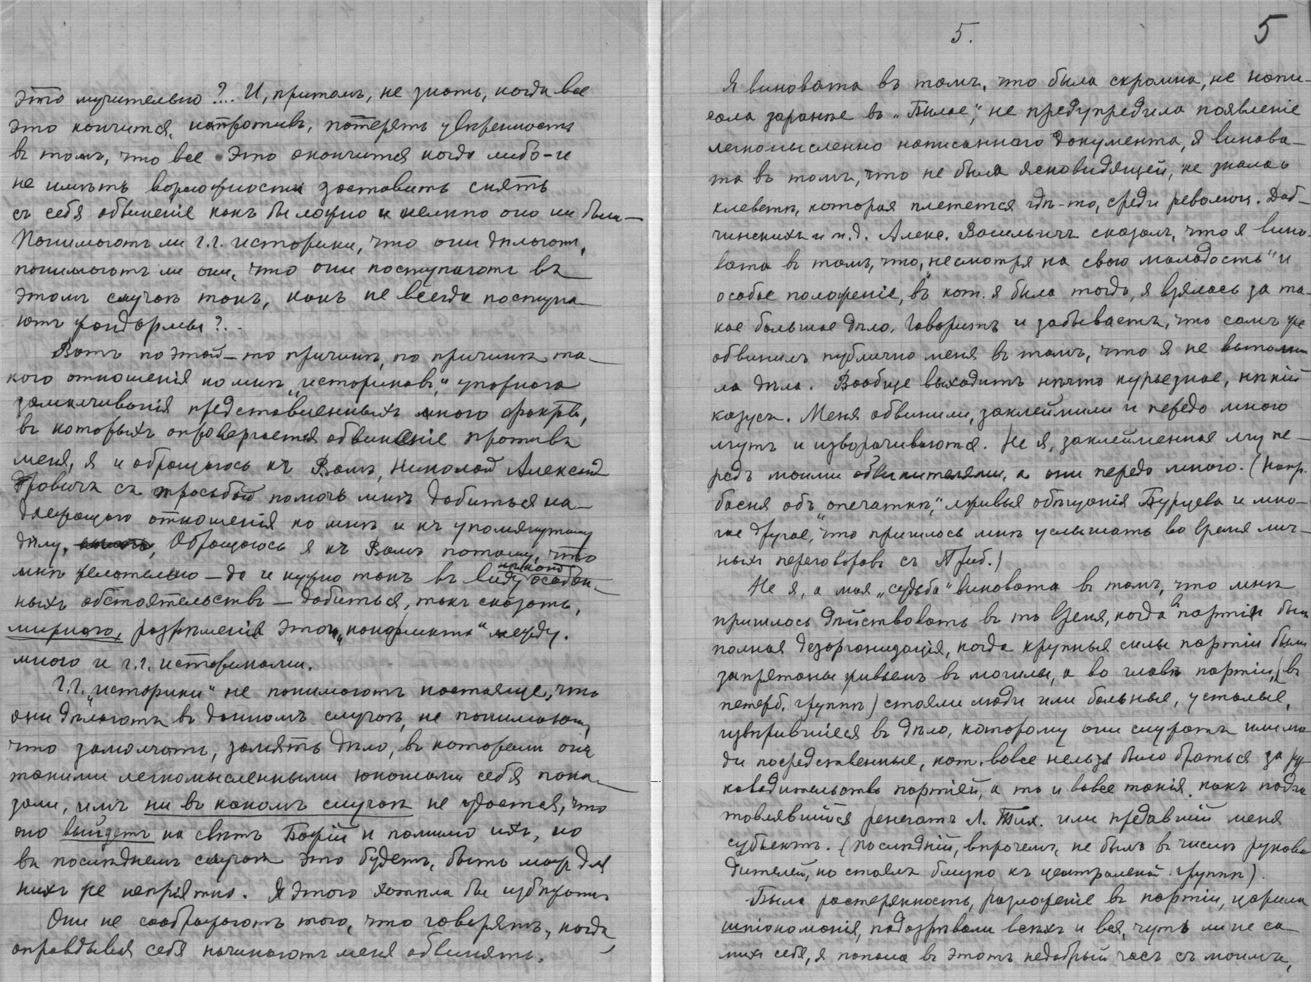 это мучительно?... И, притомъ, не знать, когда все
это кончится, напротивъ, потерять увѣренность
въ томъ, что все это окончится когда либо - и
не имѣть возможности заставить снять
съ себя обвиненіе какъ бы ложно и нелѣпо оно ни было -
Понимаютъ ли г.г. историки, что они дѣлаютъ,
понимаютъ ли они, что они поступаютъ въ
этомъ случаѣ такъ, какъ не всегда поступа
ютъ жандармы?..
Вотъ по этой-то причинѣ, по причинѣ та-
кого отношенія ко мнѣ „историковъ", упорнаго
замалчиванія представленныхъ мною фактовъ,
въ которыхъ опровергается обвиненіе противъ
меня, я и обращаюсь къ Вамъ, Николай Александ
ровичъ съ просьбой помочь мнѣ добиться на-
длежащаго отношенія ко мнѣ и къ упомянутому
дѣлу. Обращаюсь я къ Вамъ потому, что
мнѣ желательно - да и нужно такъ въ виду особен-
ныхъ обстоятельствъ - добиться, такъ сказать,
мирнаго, разрѣшенія этого „конфликта" между
мною и г.г. историками.
Г.г. „историки" не понимаютъ настояще, что
они дѣлаютъ въ данномъ случаѣ, не понимаютъ,
что замолчать, замять дѣло, въ которомъ они
такими легкомысленными юношами себя пока-
зали, имъ ни въ какомъ случаѣ не удастся, что
оно выйдетъ на свѣтъ Божій и помимо ихъ, но
въ послѣднемъ случаѣ это будетъ, быть можетъ для
нихъ же непріятно. Я этого хотѣла бы избѣжать
Они не соображаютъ того, что говорятъ, когда,
оправдывая себя начинаютъ меня обвинять.
5.
5
Я виновата въ томъ, что была скромна, не напи-
сала заранѣе въ „Былое", не предупредила появленіе
легкомысленно написаннаго документа, я винова-
та въ томъ, что не была ясновидящей, не знала о
клеветѣ, которая плетется гдѣ-то, среди революц. Доб-
чинскихъ и т.д. Алекс. Васильичъ сказалъ, что я вино-
вата въ томъ, что, „несмотря на свою молодость" и
особое положеніе, въ кот. я была тогда, я взялась за та-
кое большое дѣло. Говоритъ и забываетъ, что самъ же
обвинилъ публично меня въ томъ, что я не выполни
ла дѣла. Вообще выходитъ нѣчто курьезное, нѣкій
казусъ. Меня обвинили, заклеймили и передо мною
лгутъ и изворачиваются. Не я, заклейменная лгу пе-
редъ моими обвинителями, а они передо мною. (Напр.
басня объ „опечаткѣ", лживыя обѣщанія Бурцева и мно-
гое другое, что пришлось мнѣ услышать во время лич-
ныхъ переговоровъ съ Приб.)
Не я, а моя „судьба" виновата въ томъ, что мнѣ
пришлось дѣйствовать въ то время, когда въ партіи была
полная дезорганизація, когда крупныя силы партіи были
запрятаны живьемъ въ могилы, а во главѣ партіи, (въ
петерб. группѣ) стояли люди или больные, усталые,
извѣрившіеся въ дѣло, которому они служатъ или лю
ди посредственные, кот. вовсе нельзя было браться за ру
ководительство партіей, а то и вовсе такія какъ подго
товлявшійся ренегатъ Л. Тих. или предавшій меня
субъектъ. (Послѣдній, впрочемъ, не былъ въ числѣ руково
дителей, но стоялъ близко къ центральной группѣ).
Была растерянность, разложеніе въ партіи, царила
шпіономанія, подозрѣвали всѣхъ и вся, чуть ли не са-
михъ себя, я попала въ этотъ недобрый часъ съ моимъ,